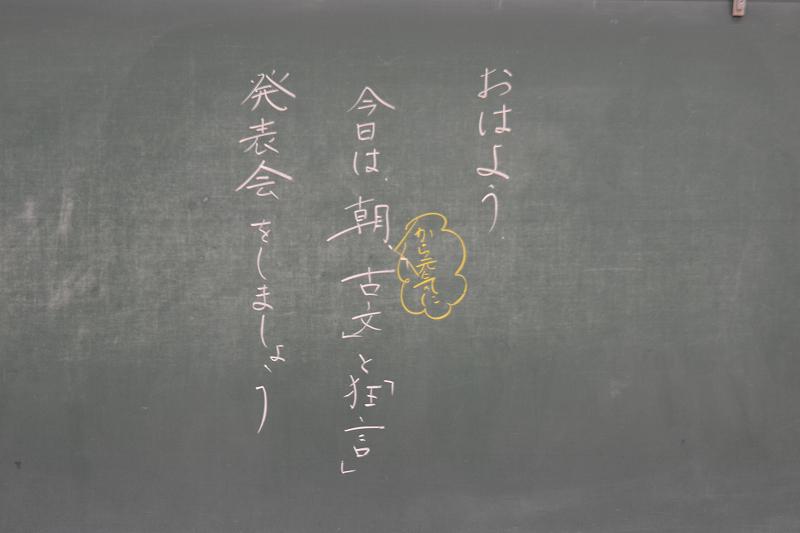 おはよう。
今日は、朝、古文」と「狂言」
から元気に
発表会をしましょう